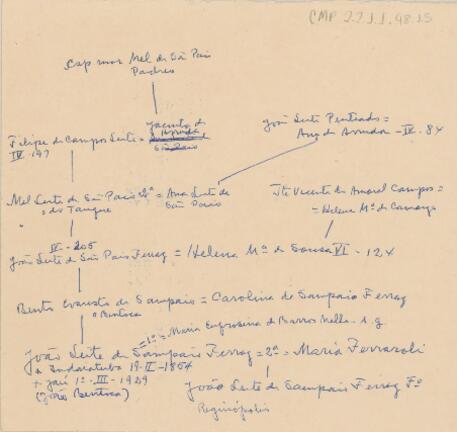 CMP 2.2.1.1.48.15
Cap mor Mel de São Paio
Padres
Jacinta de
Arruda
São Paio
João Leite Penteado =
Ana de Arruda - IV - 84
Filipe de Campos Leite =
IV. 197
Mel Leite de São Paio 2ª = Ana Leite de
São Paio
do Tanque
Jte Vicente do Amaral Campos =
= Helena Mª de Camargo
IV - 205
João Leite de São Paio Ferraz = Helena Mª de Sousa VI - 124
Bento Evaristo de Sampaio = Carolina de Sampaio Ferraz
Bentoca
= 1ª = Maria Eufrosina de Barros Mello - s. g.
João Leite de Sampaio Ferraz = 2ª = Maria Ferraroli
* Indaiatuba 19-II-1864
+ Jaú 1º-III-1929
(João Bentoca)
João Leite de Sampaio Ferraz Fº
Reginópolis